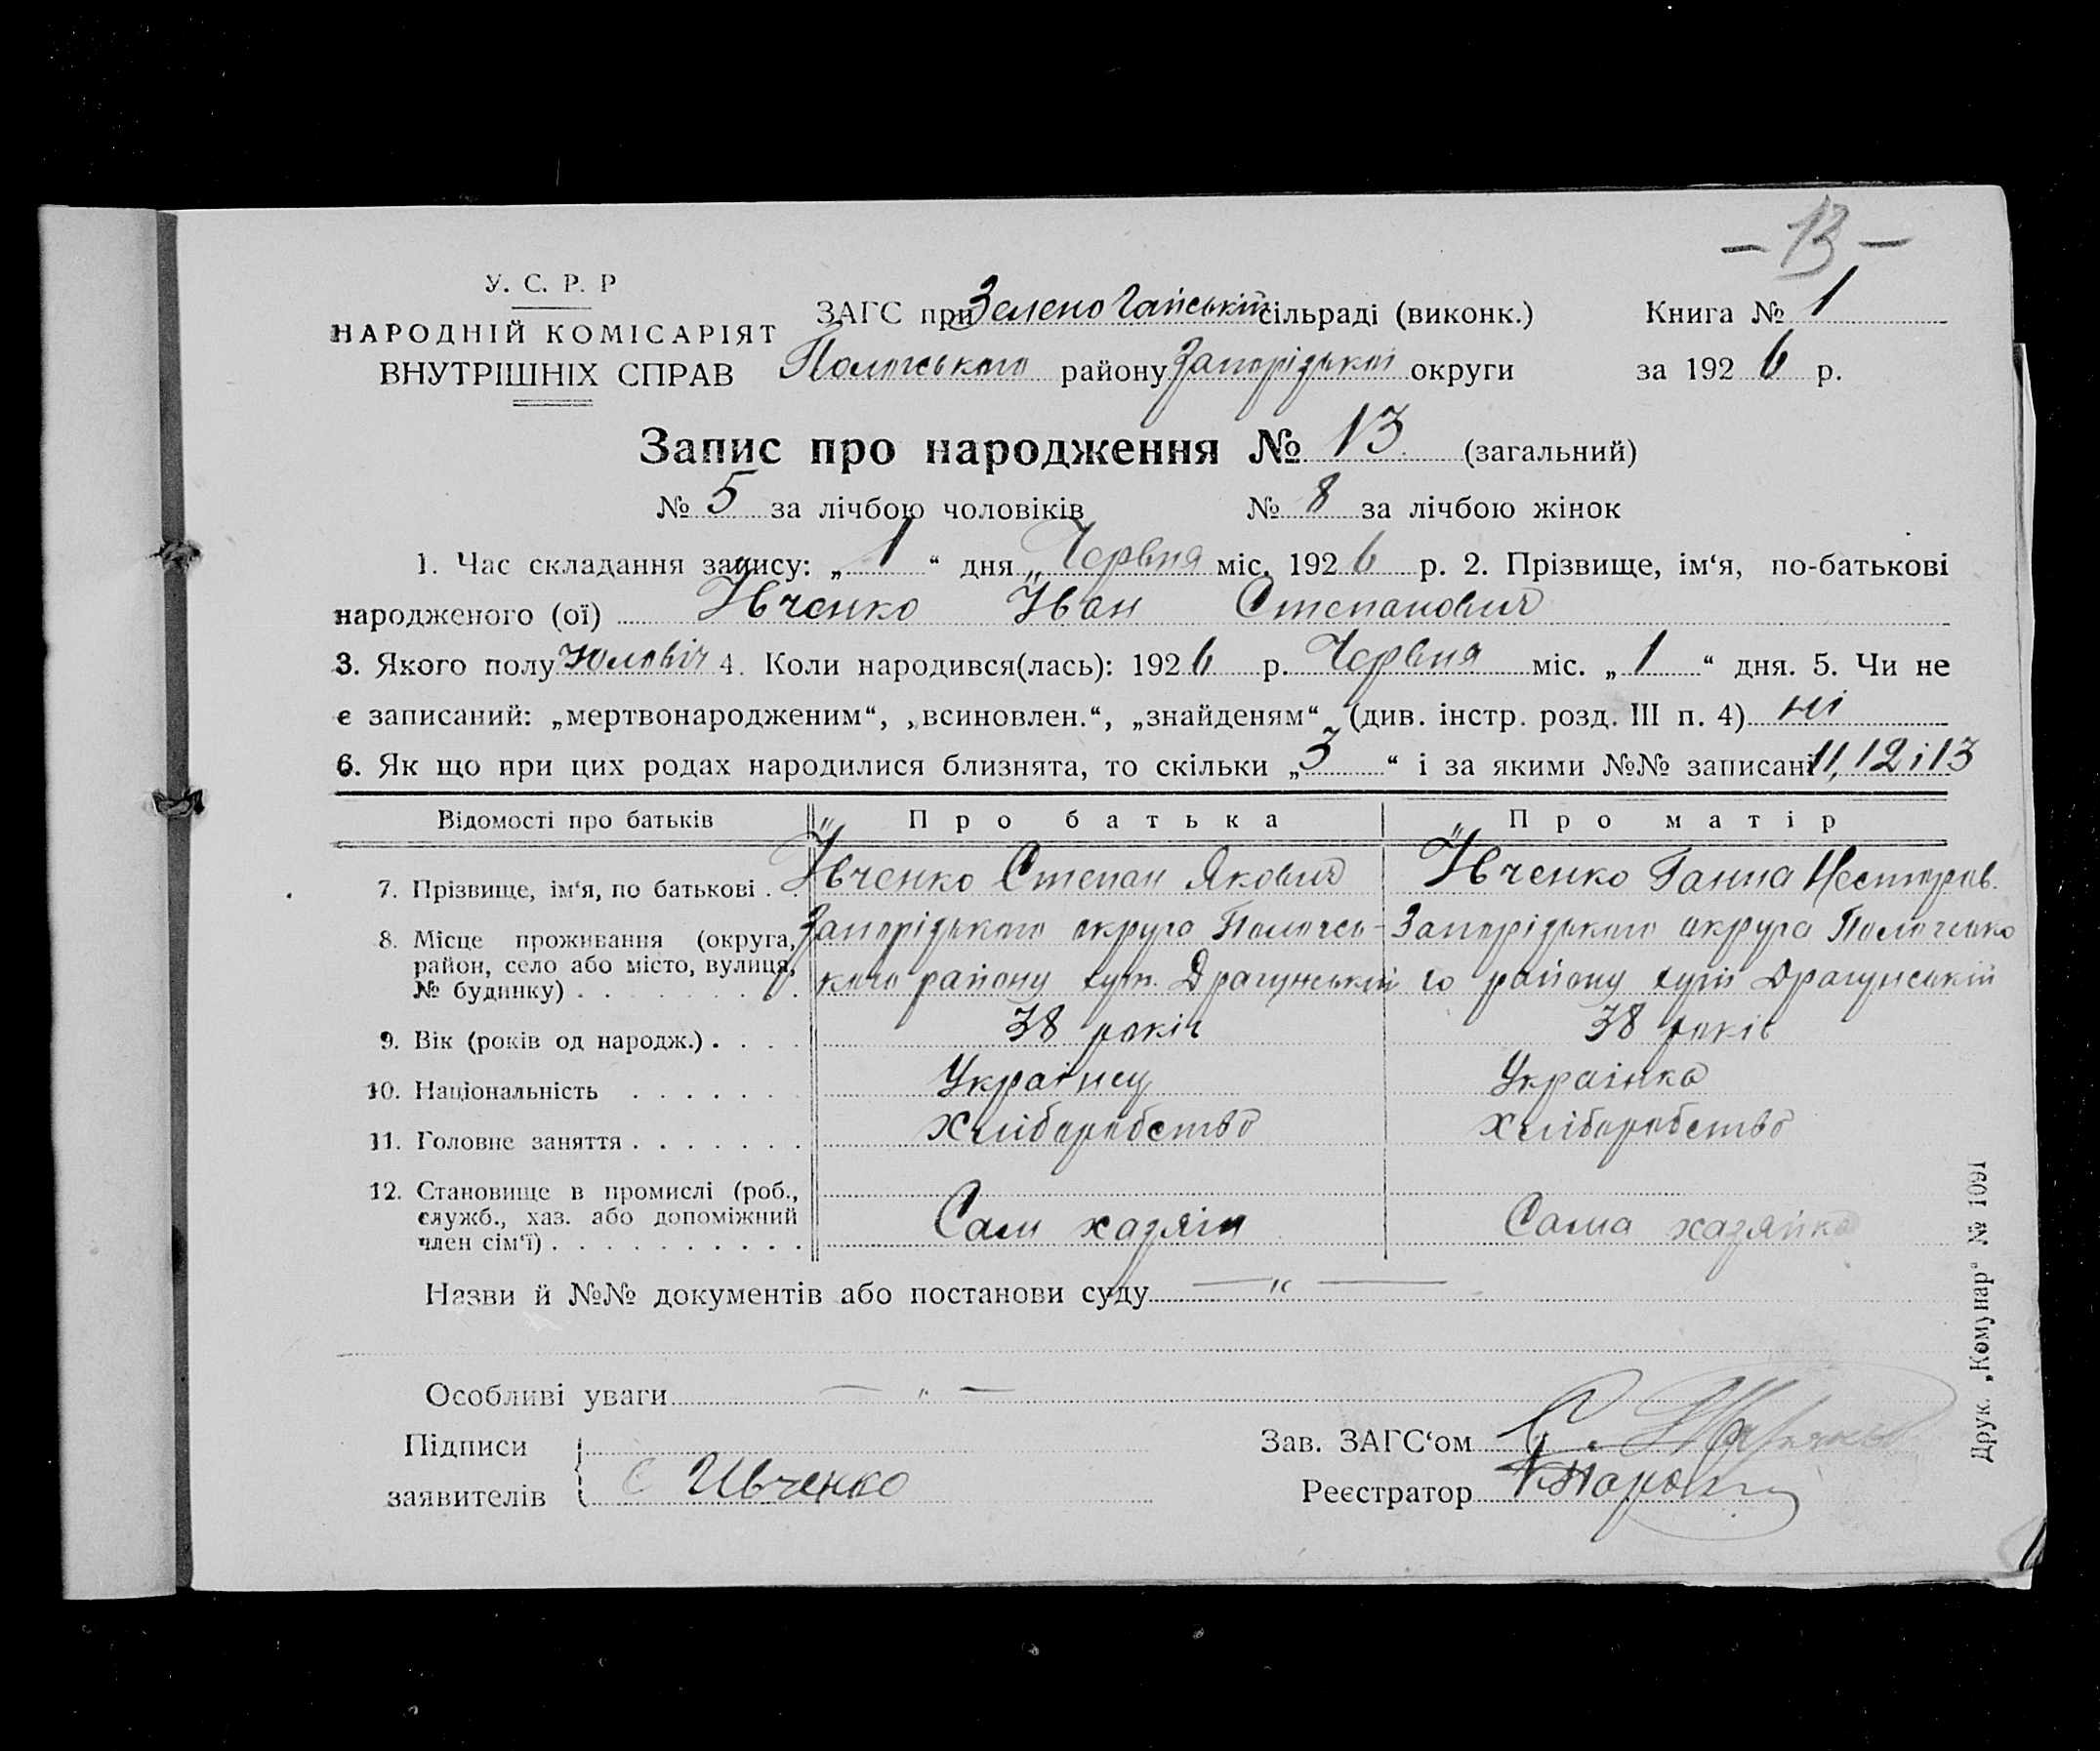 — 13 —
У. С. Р. Р
НАРОДНІЙ КОМІСАРІЯТ
ВНУТРІШНІХ СПРАВ
ЗАГС при Зелено Гайській сільраді (виконк.) Книга № 1
Пологського району Запорізької округи за 1926 р.
Запис про народження № 13 (загальний)
№ 5 за лічбою чоловіків № 8 за лічбою жінок
1. Час складання запису: „ 1 “ дня Червня міс. 1926 р. 2. Прізвище, ім‘я, по-батькові
народженого (ої) Івченко Іван Степанович
3. Якого полу 4. Коли народився(лась): 1926 р. Червня міс. „ 1 “ дня. 5. Чи не
є записаний: „мертвонародженим“, „всиновлен.“, „знайденям“ (див. інстр. розд. III п. 4) ні
6. Як що при цих родах народилися близнята, то скільки „ 3 “ і за якими №№ записані 11, 12 і 13
Відомості про батьків Про батька Про матір
7. Прізвище, ім‘я, по батькові . . Івченко Степан Якович Івченко Ганна Несторов.
8. Місце проживання (округа, Запорізького округа Пологсь- Запорізького округа Пологсько
район, село або місто, вулиця, кого району хут. Драгунський го району хут. Драгунській
№ будинку) . . . . . . . .
9. Вік (років од народж.) . . . . 38 років 38 років
10. Національність . . . . . . . Українец Українка
11. Головне заняття . . . . . . . Хліборобство Хліборобство
12. Становище в промислі (роб.,
служб., хаз. або допоміжний Сам хазяін Сама хазяйка
член сім‘ї) . . . . . . . . . .
Назви й №№ документів або постанови суду — " —
Особливі уваги — " —
Підписи Зав. ЗАГС‘ом
заявителів С Ивченко Реєстратор
Друк. „Комунар“ № 1091